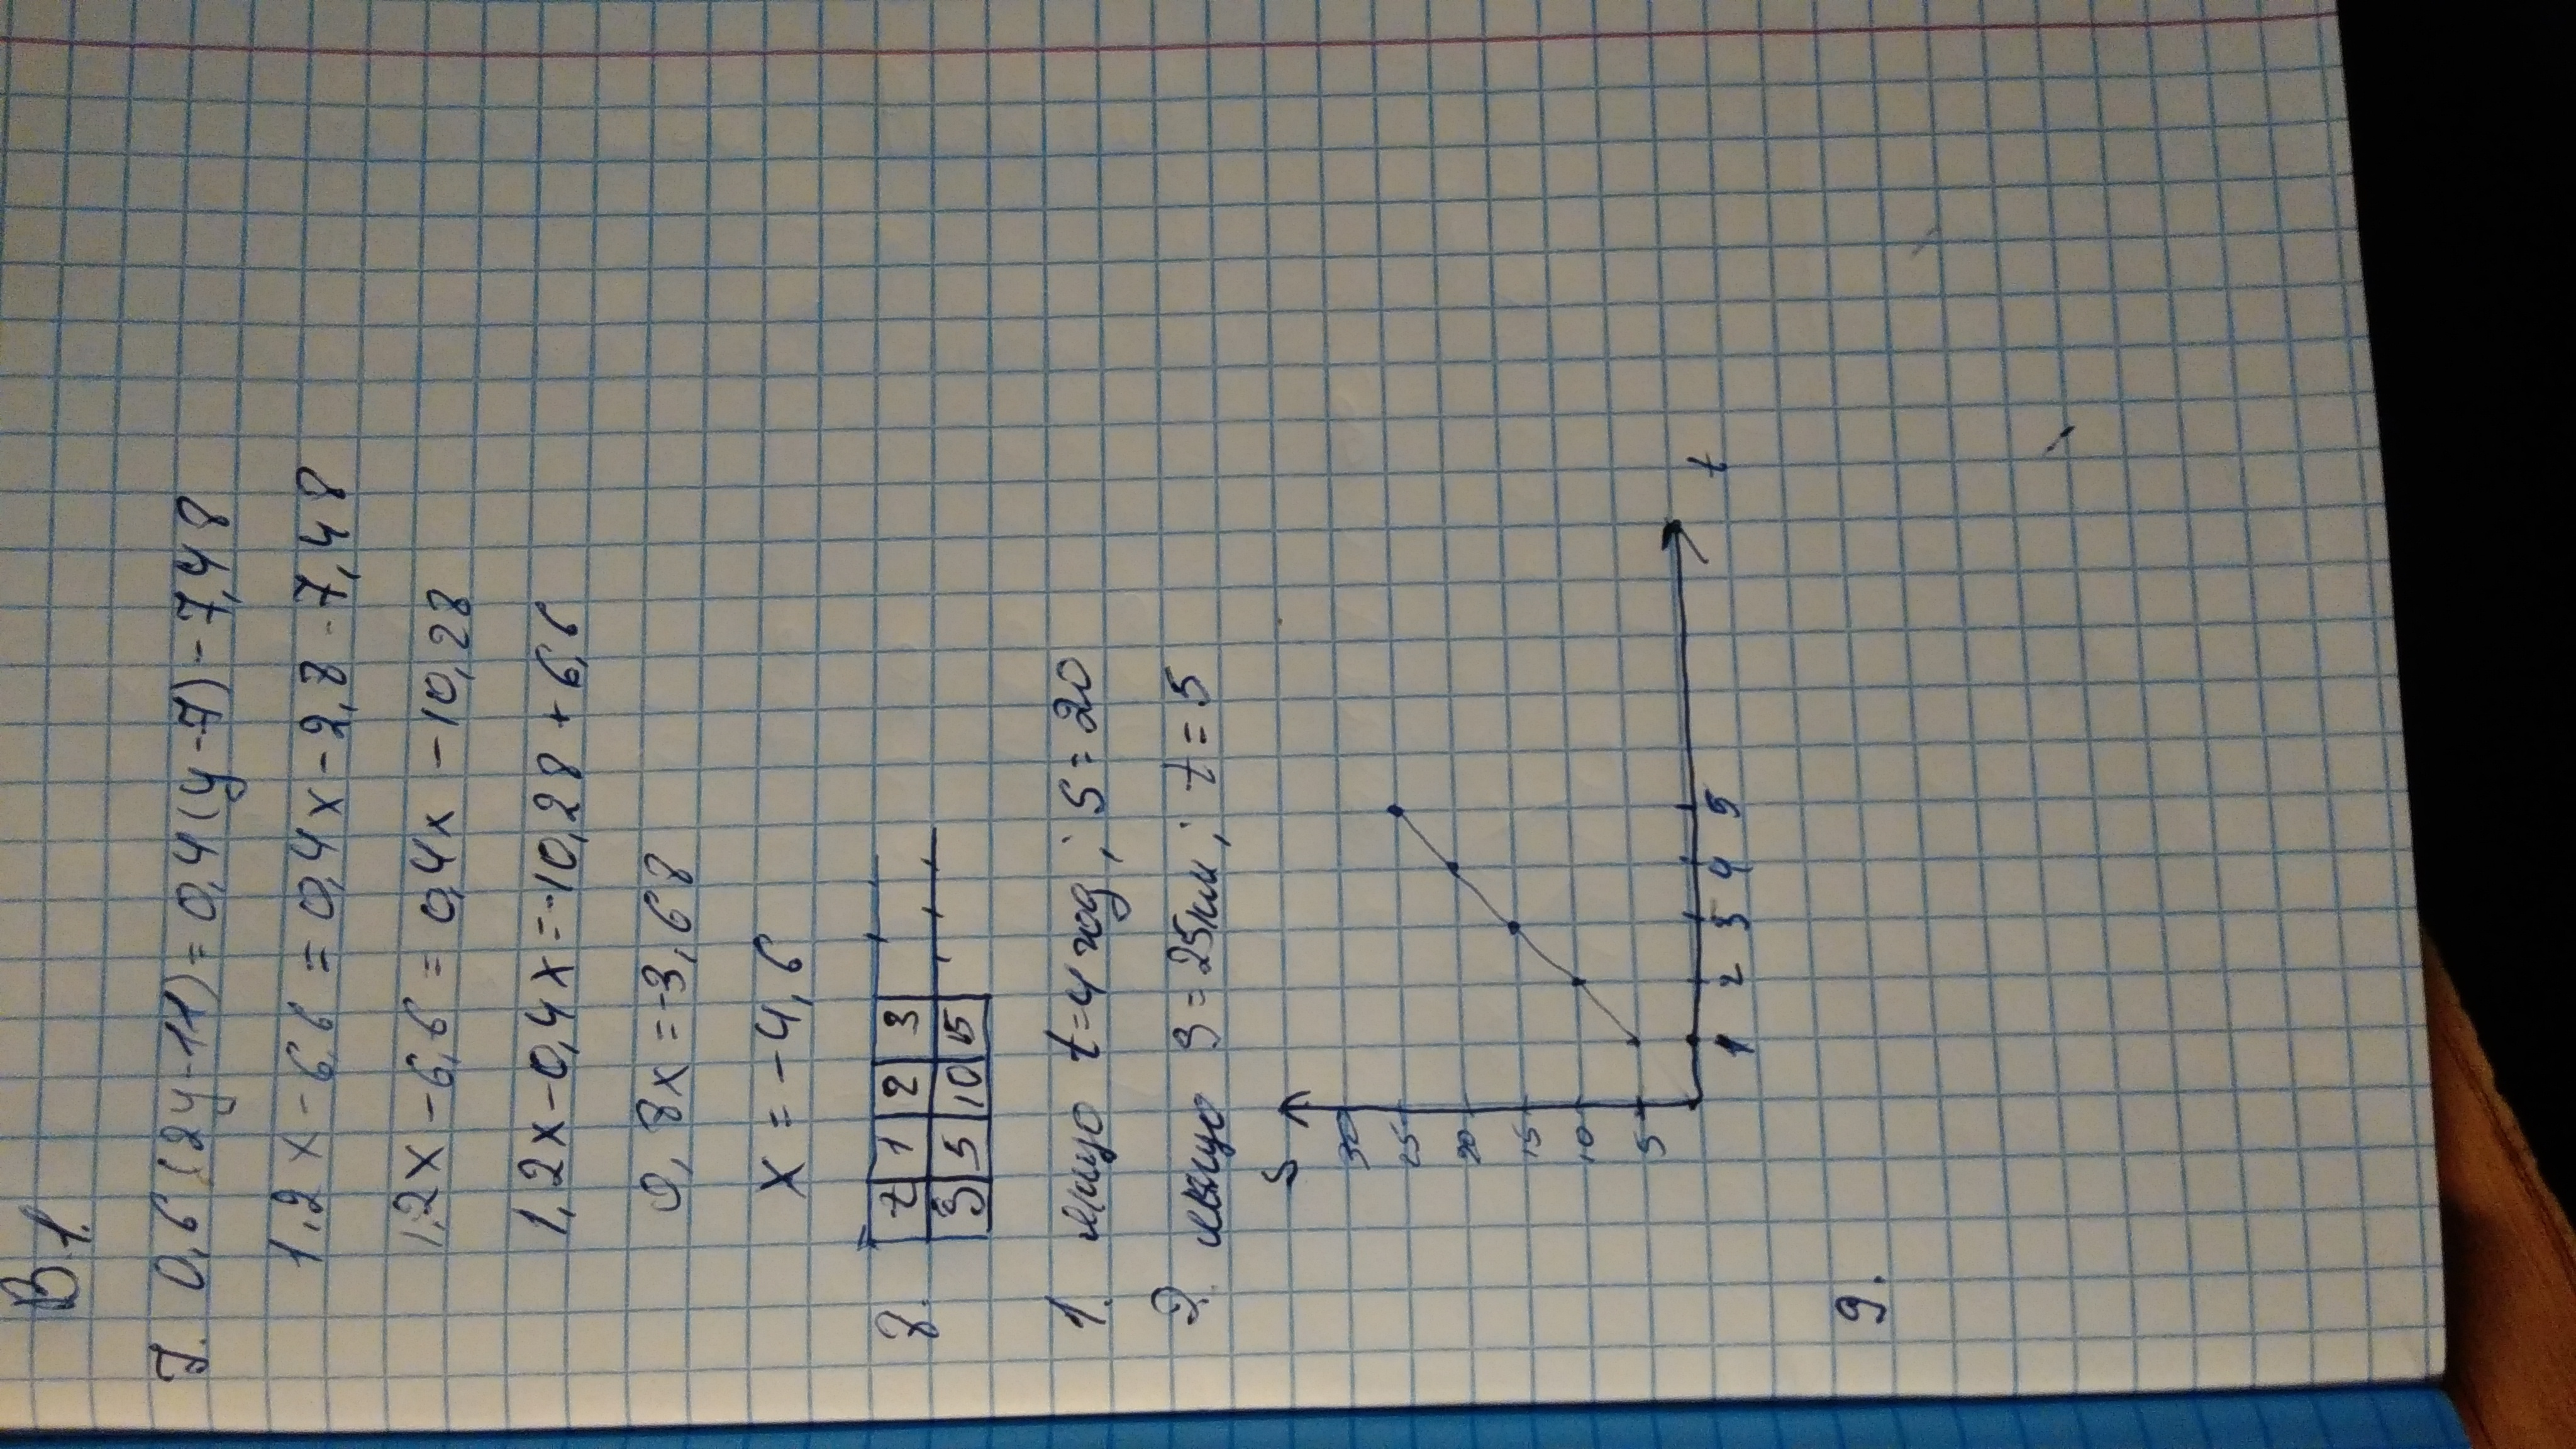 В-1.
7. 0,6(2y-11)=0,4(y-7)-7,48
1,2x-6,6=0,4x-2,8-7,48
1,2x-6,6=0,4x-10,28
1,2x-0,4x=-10,28+6,6
0,8x=-3,68
x=-4,6
8. t 1 2 3
S 5 10 15
1. якщо t=4 год; S=20
2. якщо S=25км; t=5
S
30
25
20
15
10
5
1 2 3 4 5 t
9.